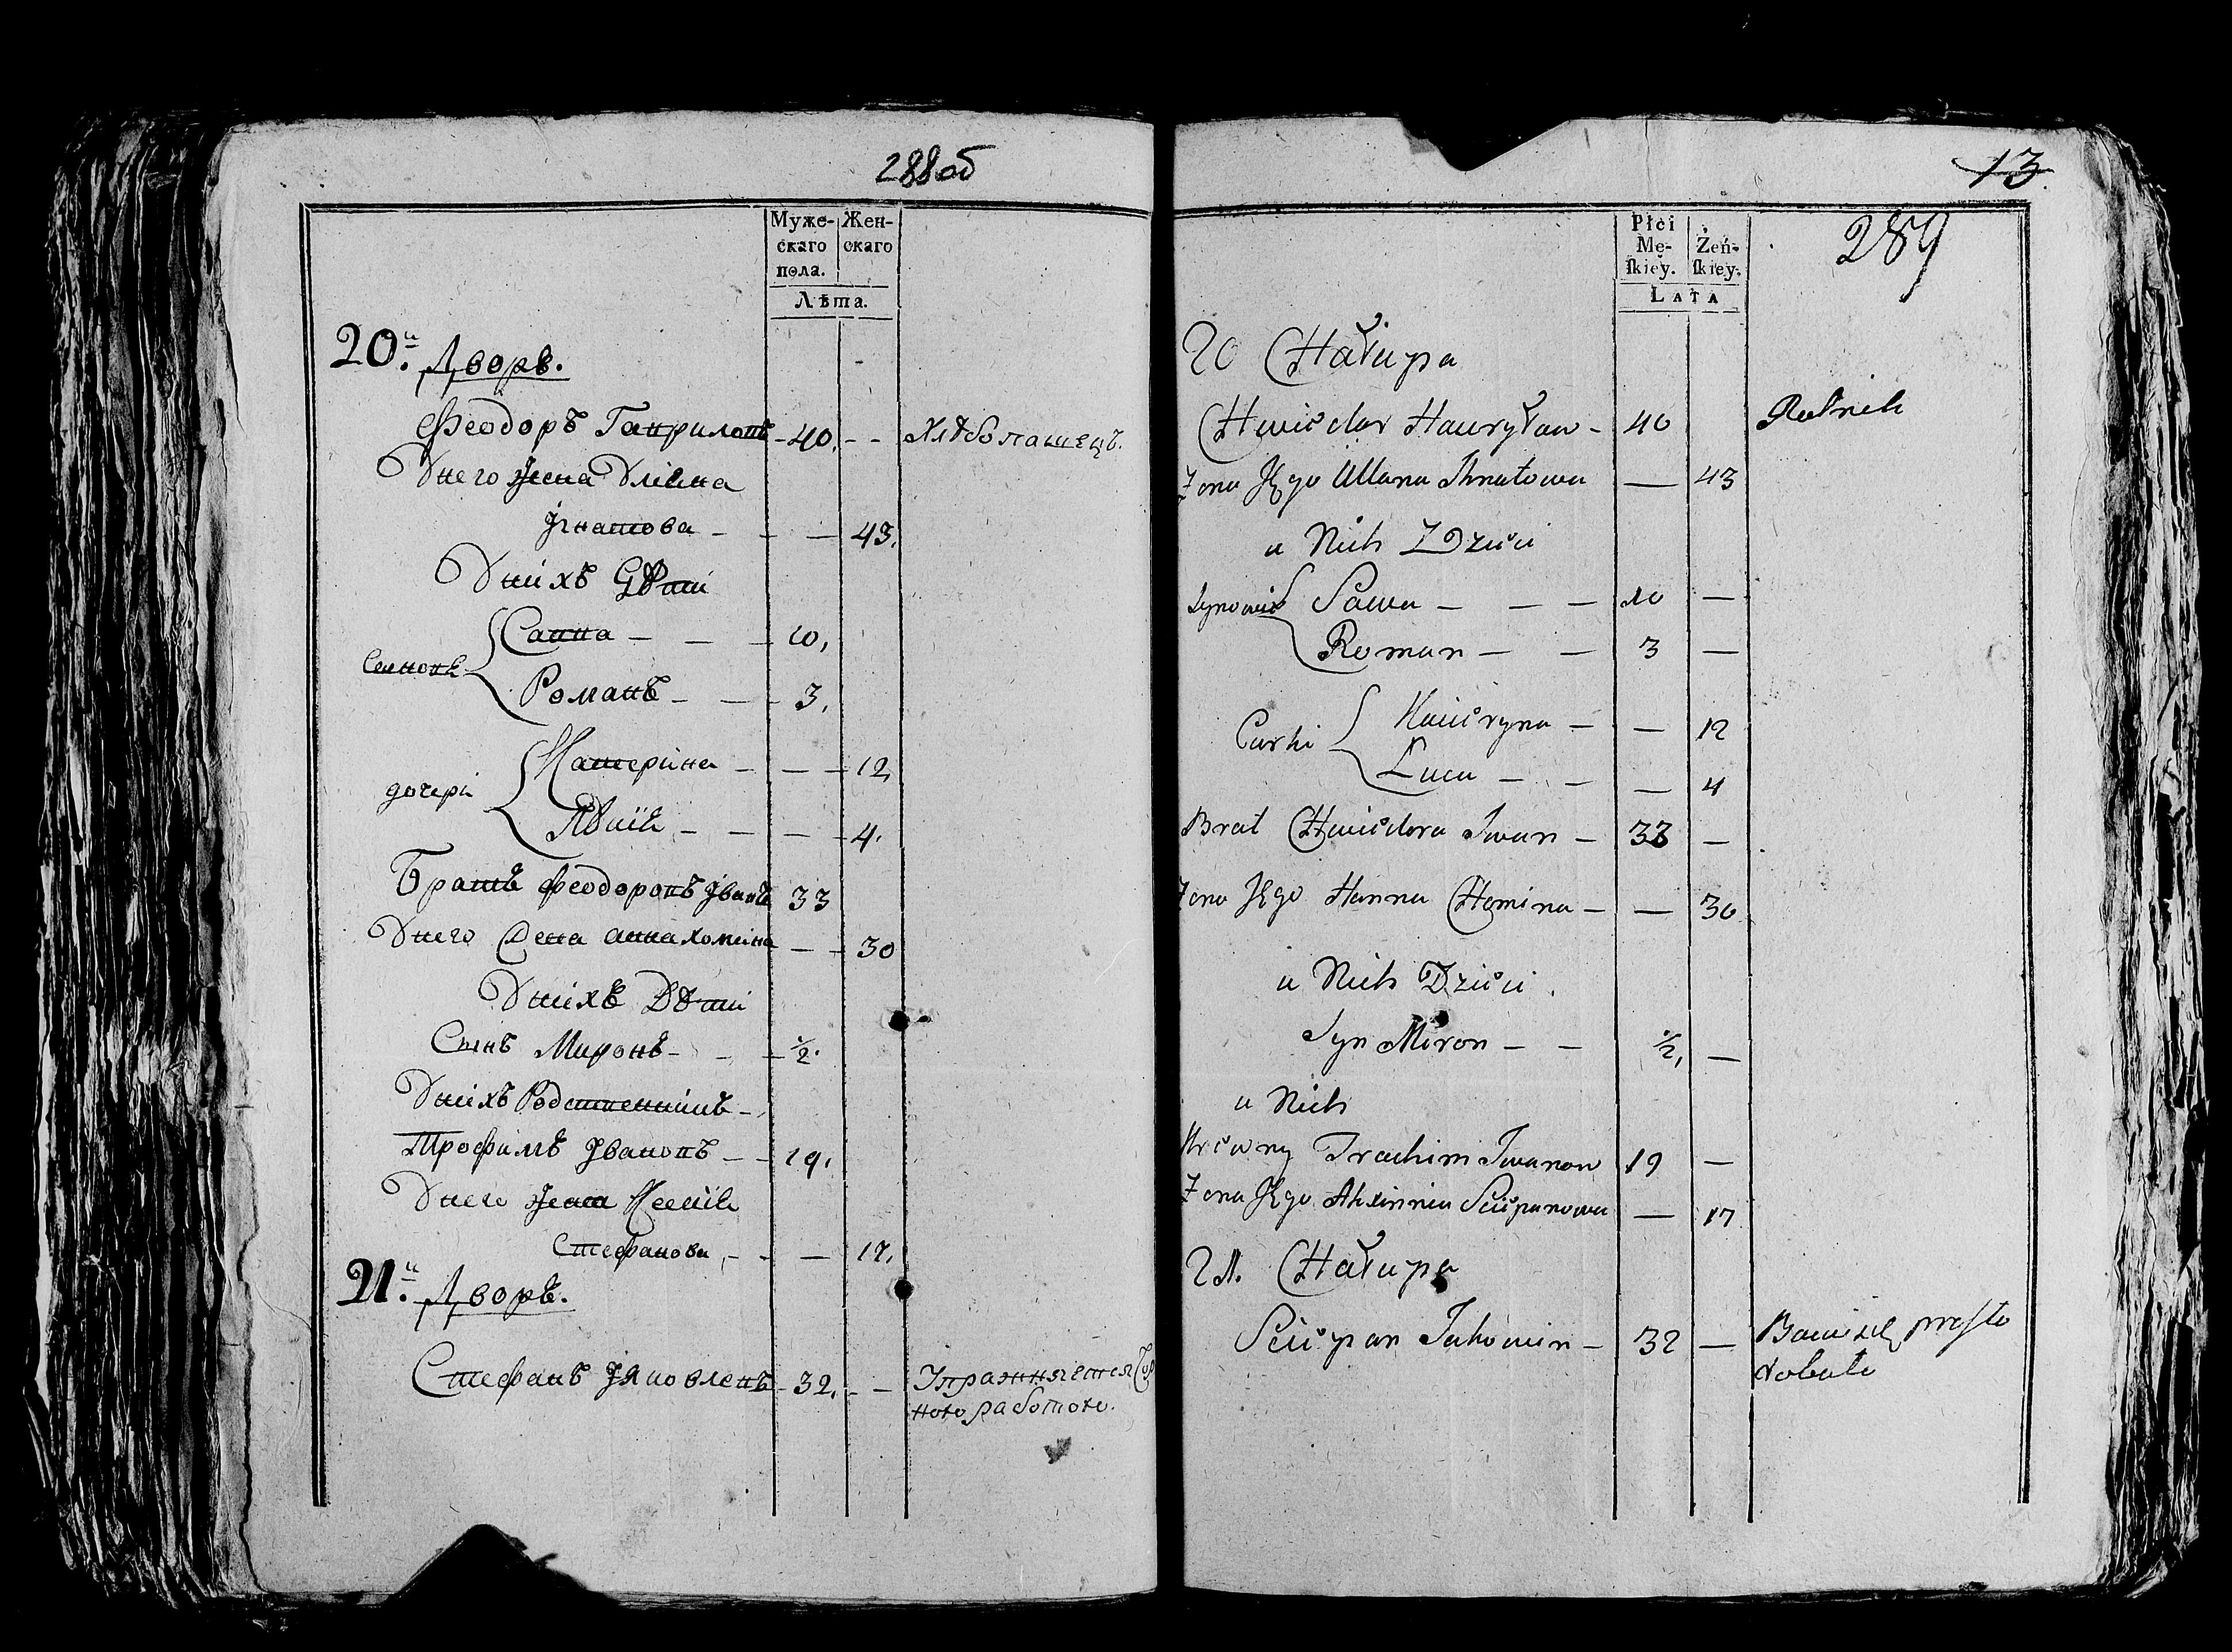 288об
Муже- Жен-
скаго скаго
пола.
Лѣта.
20й. Дворъ.
Феодоръ Гавриловъ - 40. - - Хлѣбопашецъ.
Унего жена Улiяна
Iгнатова - - - 43.
Унiхъ Дѣти
Савва - - - 10,
Сыновѣ
Романъ - - - 3,
Катерiна - - - 12,
дочерi
- - - 4.
Братъ Феодоровъ Iванъ 33
Унего Жена анна хомiна - - 30
Унiхъ Дѣтi
Сынъ Миронъ - - - ½.
Унiхъ Родственнiкъ -
Трофимъ Iвановъ - - 19.
Унего жена
Стефанова, - - - 17.
21й. Дворъ.
Стефанъ Яковлевъ - 32. - - Упражняется
ною работою.
13.
289
Płci
Mę- Żeń-
ſkiey. ſkiey.
LATA
20 Chałupa
Chwiedor Hauryław - 40 Rolnik
Zona Jego Ullana Ihnatowa — 43
u Nich Dzieci
Synowie Sawa - - - 10 —
Roman - - 3 —
Kacieryna - — 12
Curki
Luca - - — 4
Brat Chwiedora Iwan - 33 —
Zona Jego Hanna Chomina - — 30
u Nich Dzieci.
Syn Miron - - ½, —
u Nich
Krewny Trachim Iwanow 19 —
Zona Jego Akxinnia Sciepanowa — 17
21. Chałupa
Sciepan Jakowin - 32 — Bawi się prosto
roboto